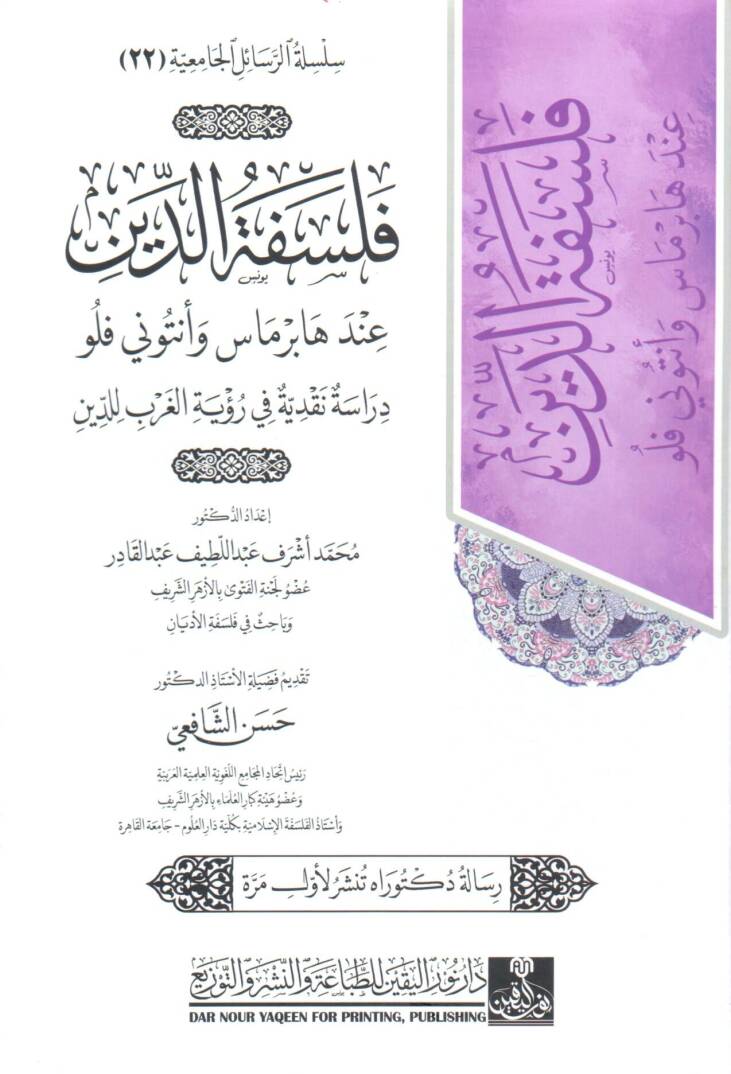 سِلْسِلَةُ الرَّسَائِلِ الجَامِعِيَّةِ (٢٢)
فَلْسَفَةُ الدِّينِ
يونس
عِنْدَ هَابِرْمَاس وَأَنْتُونِي فلُو
دِرَاسَةٌ نَقْدِيَّةٌ فِي رُؤْيَةِ الغَرْبِ لِلدِّينِ
إعْدَادُ الدُّكْتُور
مُحَمَّد أَشْرَف عَبْد اللَّطِيف عَبْد القَادِر
عُضْوُ لَجْنَةِ الفَتْوَىٰ بِالأَزْهَرِ الشَّرِيفِ
وَبَاحِثٌ فِي فَلْسَفَةِ الأَدْيَانِ
تَقْدِيمُ فَضِيلَةِ الأُسْتَاذِ الدكْتُور
حَسَن الشَّافِعِيّ
رَئِيسُ اتِّحَادِ المَجَامِعِ اللُّغَوِيَّةِ العِلْمِيَّةِ العَرَبِيَّةِ
وَعُضْوُ هَيْئَةِ كِبَارِ العُلَمَاءِ بِالأَزْهَرِ الشَّرِيفِ
وَأُسْتَاذُ الفَلْسَفَةِ الإِسْلَامِيَّةِ بِكُلِّيَّةِ دَارِ العُلُومِ - جَامِعَة القَاهِرَة
رِسَالَةُ دُكْتُورَاه تُنْشَرُ لأَوَّلِ مَرَّة
دَارُ نُورِ اليَقِينِ لِلطِّبَاعَةِ وَالنَّشْرِ وَالتَّوْزِيعِ
DAR NOUR YAQEEN FOR PRINTING, PUBLISHING
نور اليقين
فَلْسَفَةُ الدِّينِ
يونس
عِنْدَ هَابِرْمَاس وَأَنْتُونِي فلُو